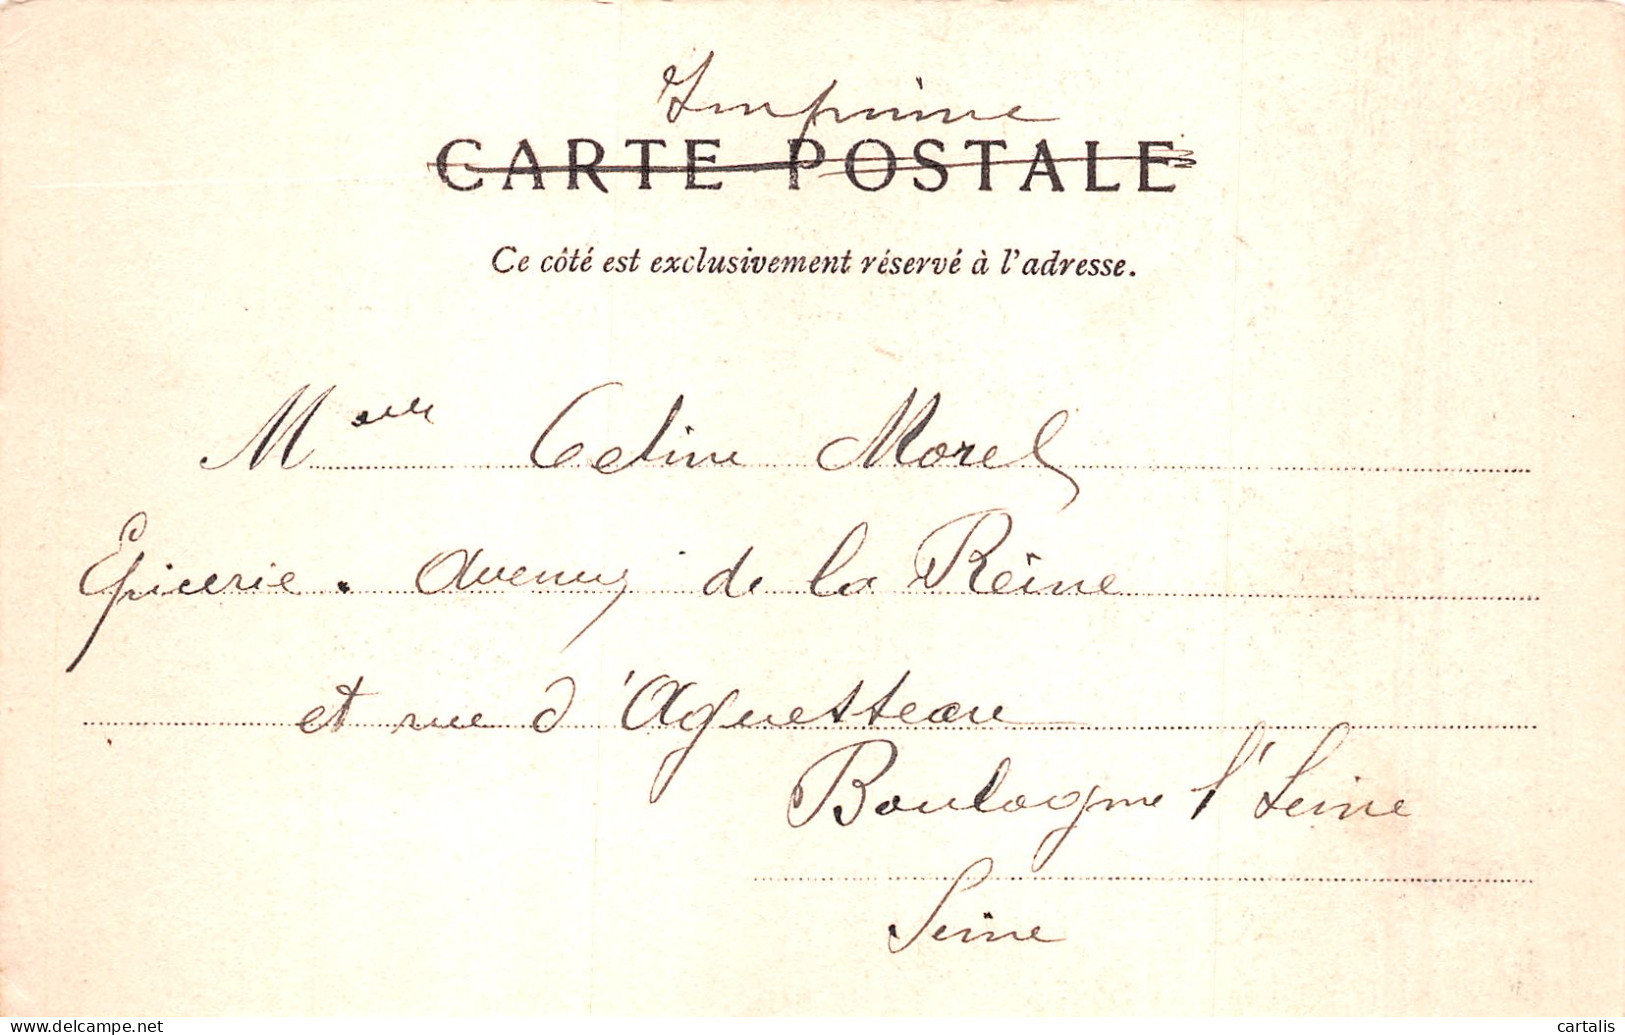 Imprime
CARTE POSTALE
Ce côté est exclusivement réservé à l'adresse.
Melle Celine Morel
Epicerie. Avenue de la Reine
et rue d'Aguesseau
Boulogne s/ Seine
Seine
www.delcampe.net
cartalis